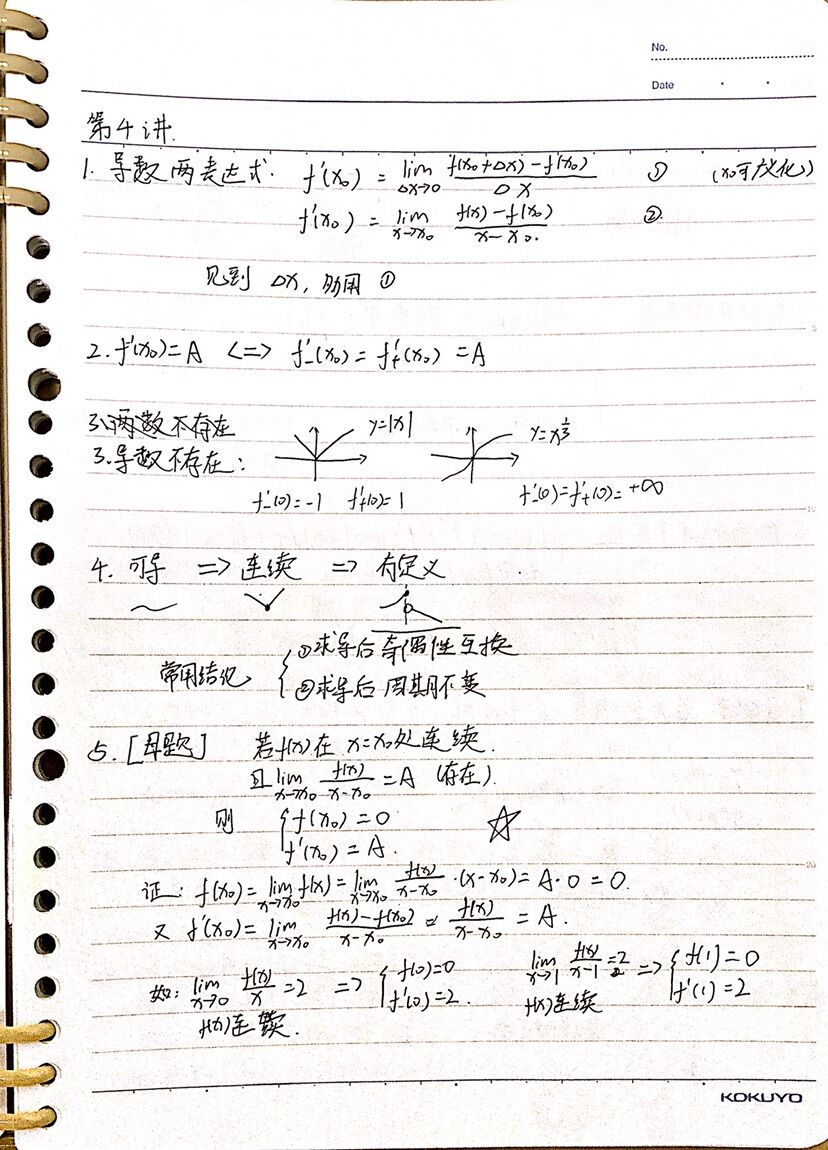 No.
Date
第4讲.
1. 导数两表达式. f'(x₀) = lim_{Δx→0} \frac{f(x₀+Δx)-f(x₀)}{Δx} ① (x₀可广义化)
f'(x₀) = lim_{x→x₀} \frac{f(x)-f(x₀)}{x-x₀.} ②.
见到 Δx, 多用 ①
2. f'(x₀)=A <=> f'₋(x₀) = f'₊(x₀) = A
3、两数不存在
3. 导数不存在: y=|x| y=x^{\frac{1}{3}}
f'₋(0)=-1 f'₊(0)=1 f'₋(0)=f'₊(0)=+∞
4. 可导 => 连续 => 有定义
常用结化 { ①求导后奇偶性互换
②求导后周期不变
5. [母题] 若f(x)在 x=x₀处连续.
且 lim_{x→x₀} \frac{f(x)}{x-x₀} = A (存在).
则 { f(x₀) = 0 ☆
f'(x₀) = A.
证: f(x₀) = lim_{x→x₀} f(x) = lim_{x→x₀} \frac{f(x)}{x-x₀} ·(x-x₀) = A·0 = 0.
又 f'(x₀) = lim_{x→x₀} \frac{f(x)-f(x₀)}{x-x₀} = \frac{f(x)}{x-x₀} = A.
如: lim_{x→0} \frac{f(x)}{x} = 2 => { f(0)=0 f'(0)=2. lim_{x→1} \frac{f(x)}{x-1} = 2 => { f(1)=0 f'(1)=2
f(x)连续. f(x)连续
KOKUYO